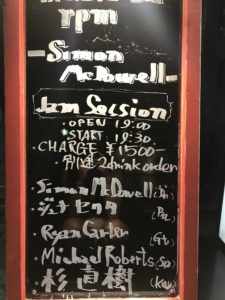 rpm
-Simon
McDowell-
Jam Sacsion
・OPEN 19:00
START 19:30
CHARGE ¥1500-
・別途2drink order
・Simon McDowell
・ジュナセクタ
・Ryan
・Michael Roberts
・杉直樹(Key)